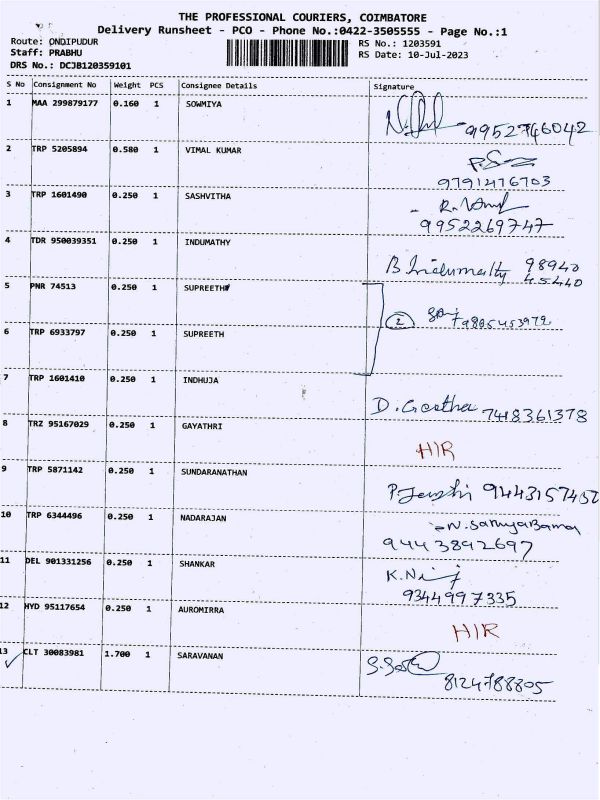 THE PROFESSIONAL COURIERS, COIMBATORE
Delivery Runsheet - PCO - Phone No.:0422-3505555 - Page No.:1
Route: ONDIPUDUR
Staff: PRABHU
DRS No.: DCJB120359101
RS No.: 1203591
RS Date: 10-Jul-2023
S No Consignment No Weight PCS Consignee Details Signature
1 MAA 299879177 0.160 1 SOWMIYA
9952746042
2 TRP 5205894 0.580 1 VIMAL KUMAR
9791476703
3 TRP 1601490 0.250 1 SASHVITHA
9952269747
4 TDR 950039351 0.250 1 INDUMATHY
B Indumathy 98940
45440
5 PNR 74513 0.250 1 SUPREETH
2
6 TRP 6933797 0.250 1 SUPREETH
7 TRP 1601410 0.250 1 INDHUJA
D. Geetha 7418361378
8 TRZ 95167029 0.250 1 GAYATHRI
HIR
9 TRP 5871142 0.250 1 SUNDARANATHAN
10 TRP 6344496 0.250 1 NADARAJAN
N. SathyaBama
9443892697
11 DEL 901331256 0.250 1 SHANKAR
9344997335
12 HYD 95117654 0.250 1 AUROMIRRA
HIR
13 CLT 30083981 1.700 1 SARAVANAN
8124788805